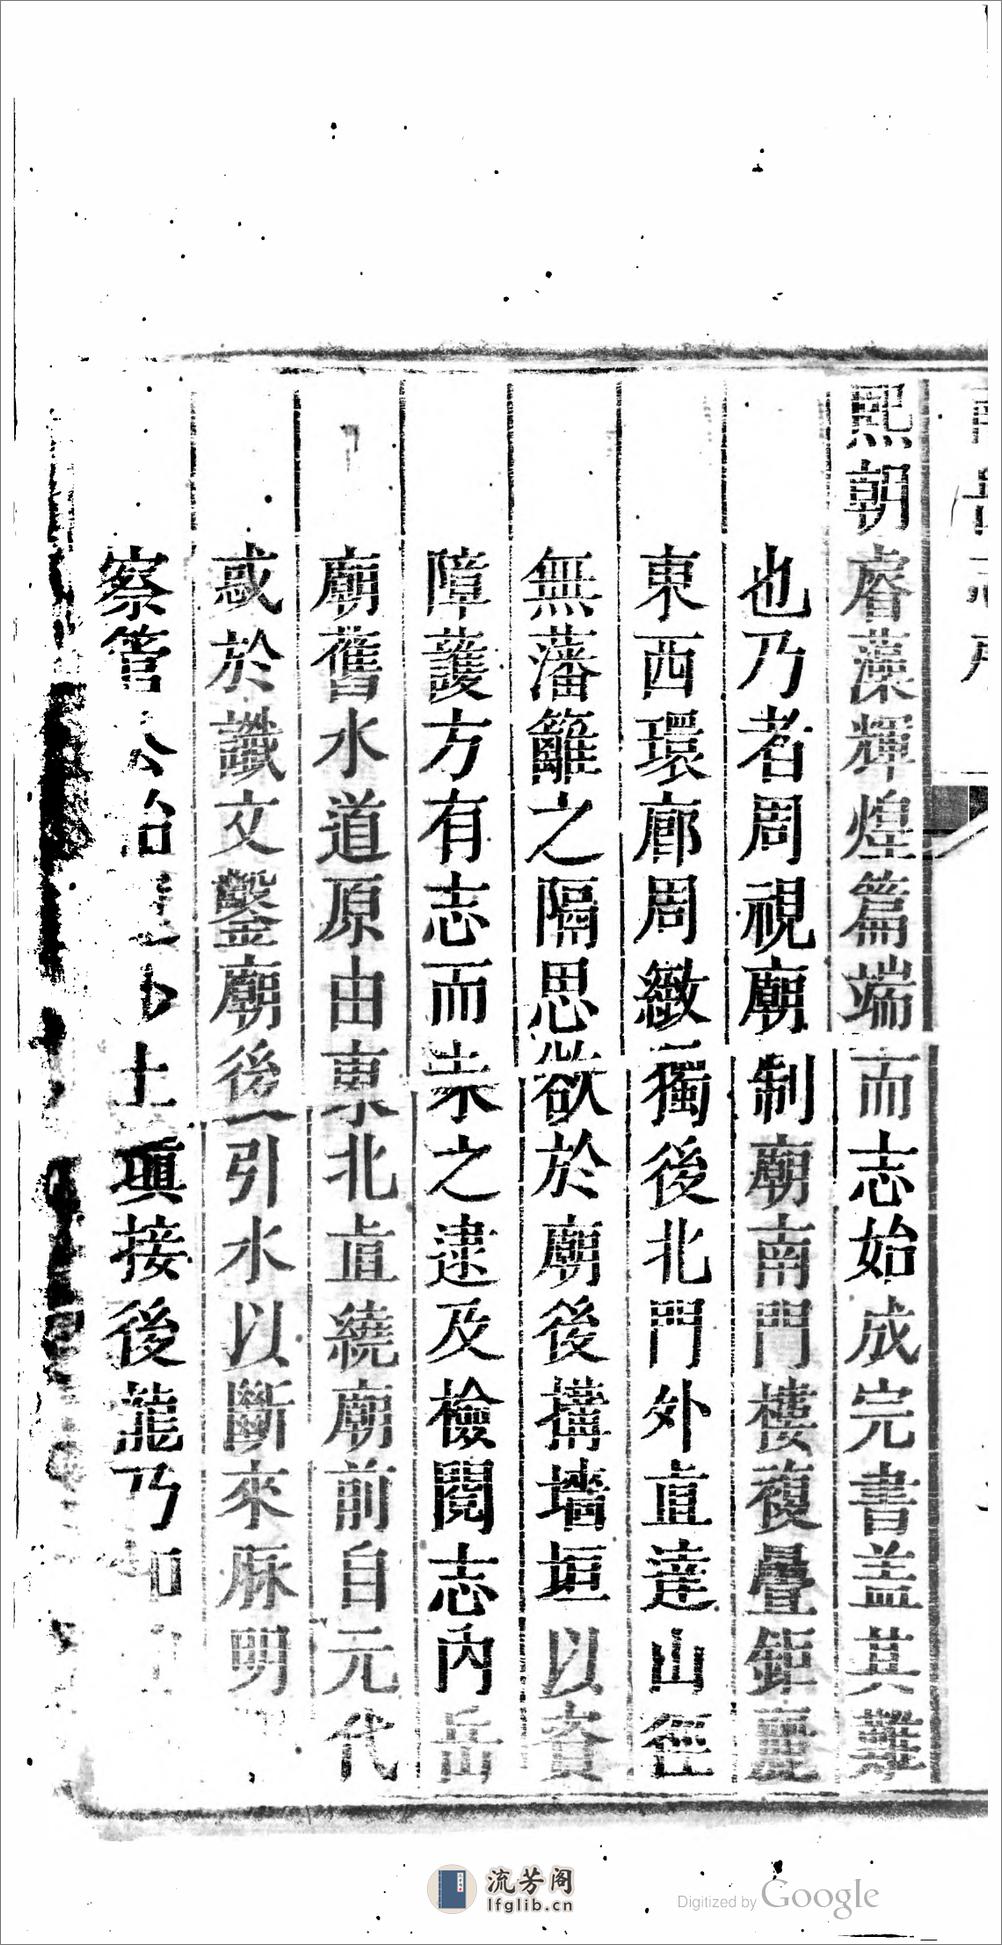 熙朝睿藻輝煌篇端而志始成完書盖其難
也乃者周視廟制廟南門樓複疊鉅麗
東西環廊周緻獨後北門外直達山徑
無藩籬之隔思欲於廟後搆墻垣以資
障護方有志而未之逮及檢閱志內岳
廟舊水道原由東北直繞廟前自元代
惑於讖文鑿廟後引水以斷來脉明
察管治土填接後龍乃
流芳阁
lfglib.cn
Digitized by Google